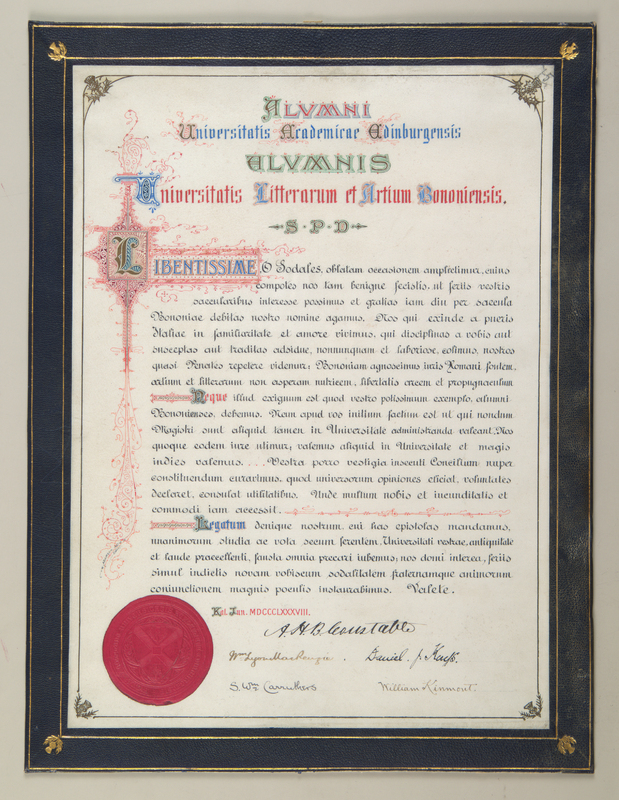 ALVMNI
Universitatis Academicae Edinburgensis
ALVMNIS
Universitatis Litterarum et Artium Bononiensis.
S·P·D
LIBENTISSIME, O Sodales, oblatam occasionem amplectimur, cuius
compotes nos tam benigne fecistis, ut feriis vestris
saecularibus interesse possimus et gratias iam diu per saecula
Bononiae debitas nostro nomine agamus. Nos qui exinde a pueris
Italiae in familiaritate et amore vivimus, qui disciplinas a vobis aut
susceptas aut traditas adsidue, nonnunquam et laboriose, colimus, nostros
quasi Penates repetere videmur; Bononiam agnoscimus iuris Romani fontem,
artium et litterarum non asperam nutricem, libertatis arcem et propugnaculum
Neque illud exiguum est quod vestro potissimum exemplo, alumni
Bononienses, debemus. Nam apud vos initium factum est ut qui nondum
Magistri sunt aliquid tamen in Universitate administranda valeant. Nos
quoque eodem iure utimur; valemus aliquid in Universitate et magis
indies valemus.... Vestra porro vestigia insecuti Concilium nuper
constituendum curavimus, quod universorum opiniones eliciat, voluntates
declaret, consulat utilitatibus. Unde multum nobis et iucunditatis et
commodi iam accessit.
Legatum denique nostrum, cui has epistolas mandamus,
unanimorum studia ac vota secum ferentem, Universitati vestrae, antiquitate
et laude praecellenti, fausta omnia precari iubemus; nos domi interea, feriis
simul indictis novam vobiscum sodalitatem fraternamque animorum
coniunctionem magnis poculis instaurabimus. Valete.
Kal. Jan. MDCCCLXXXVIII.
A.H.B. Constable
Wm Lyon Mackenzie. Daniel J.
S. Wm Carruthers William Kinmont.